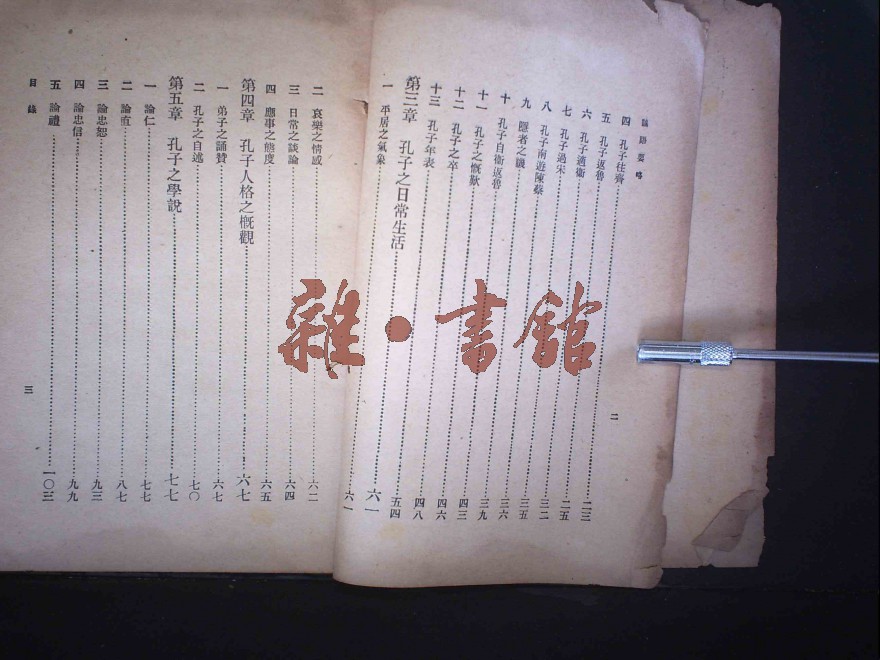 論語要略
四 孔子往齊……二三
五 孔子返魯……二五
六 孔子適衞……三二
七 孔子過宋……三五
八 孔子南遊陳蔡……三六
九 隱者之譏……三九
十 孔子自衞返魯……四三
十一 孔子之慨歎……四六
十二 孔子之卒……四八
十三 孔子年表……五四
第三章 孔子之日常生活……六一
一 平居之氣象……六一
二
二 哀樂之情感……六二
三 日常之談論……六四
四 應事之態度……六五
第四章 孔子人格之概觀……六七
一 弟子之誦贊……六七
二 孔子之自述……七〇
第五章 孔子之學說……七七
一 論仁……七七
二 論直……八七
三 論忠恕……九三
四 論忠信……九九
五 論禮……一〇三
目錄
三
雜·書館